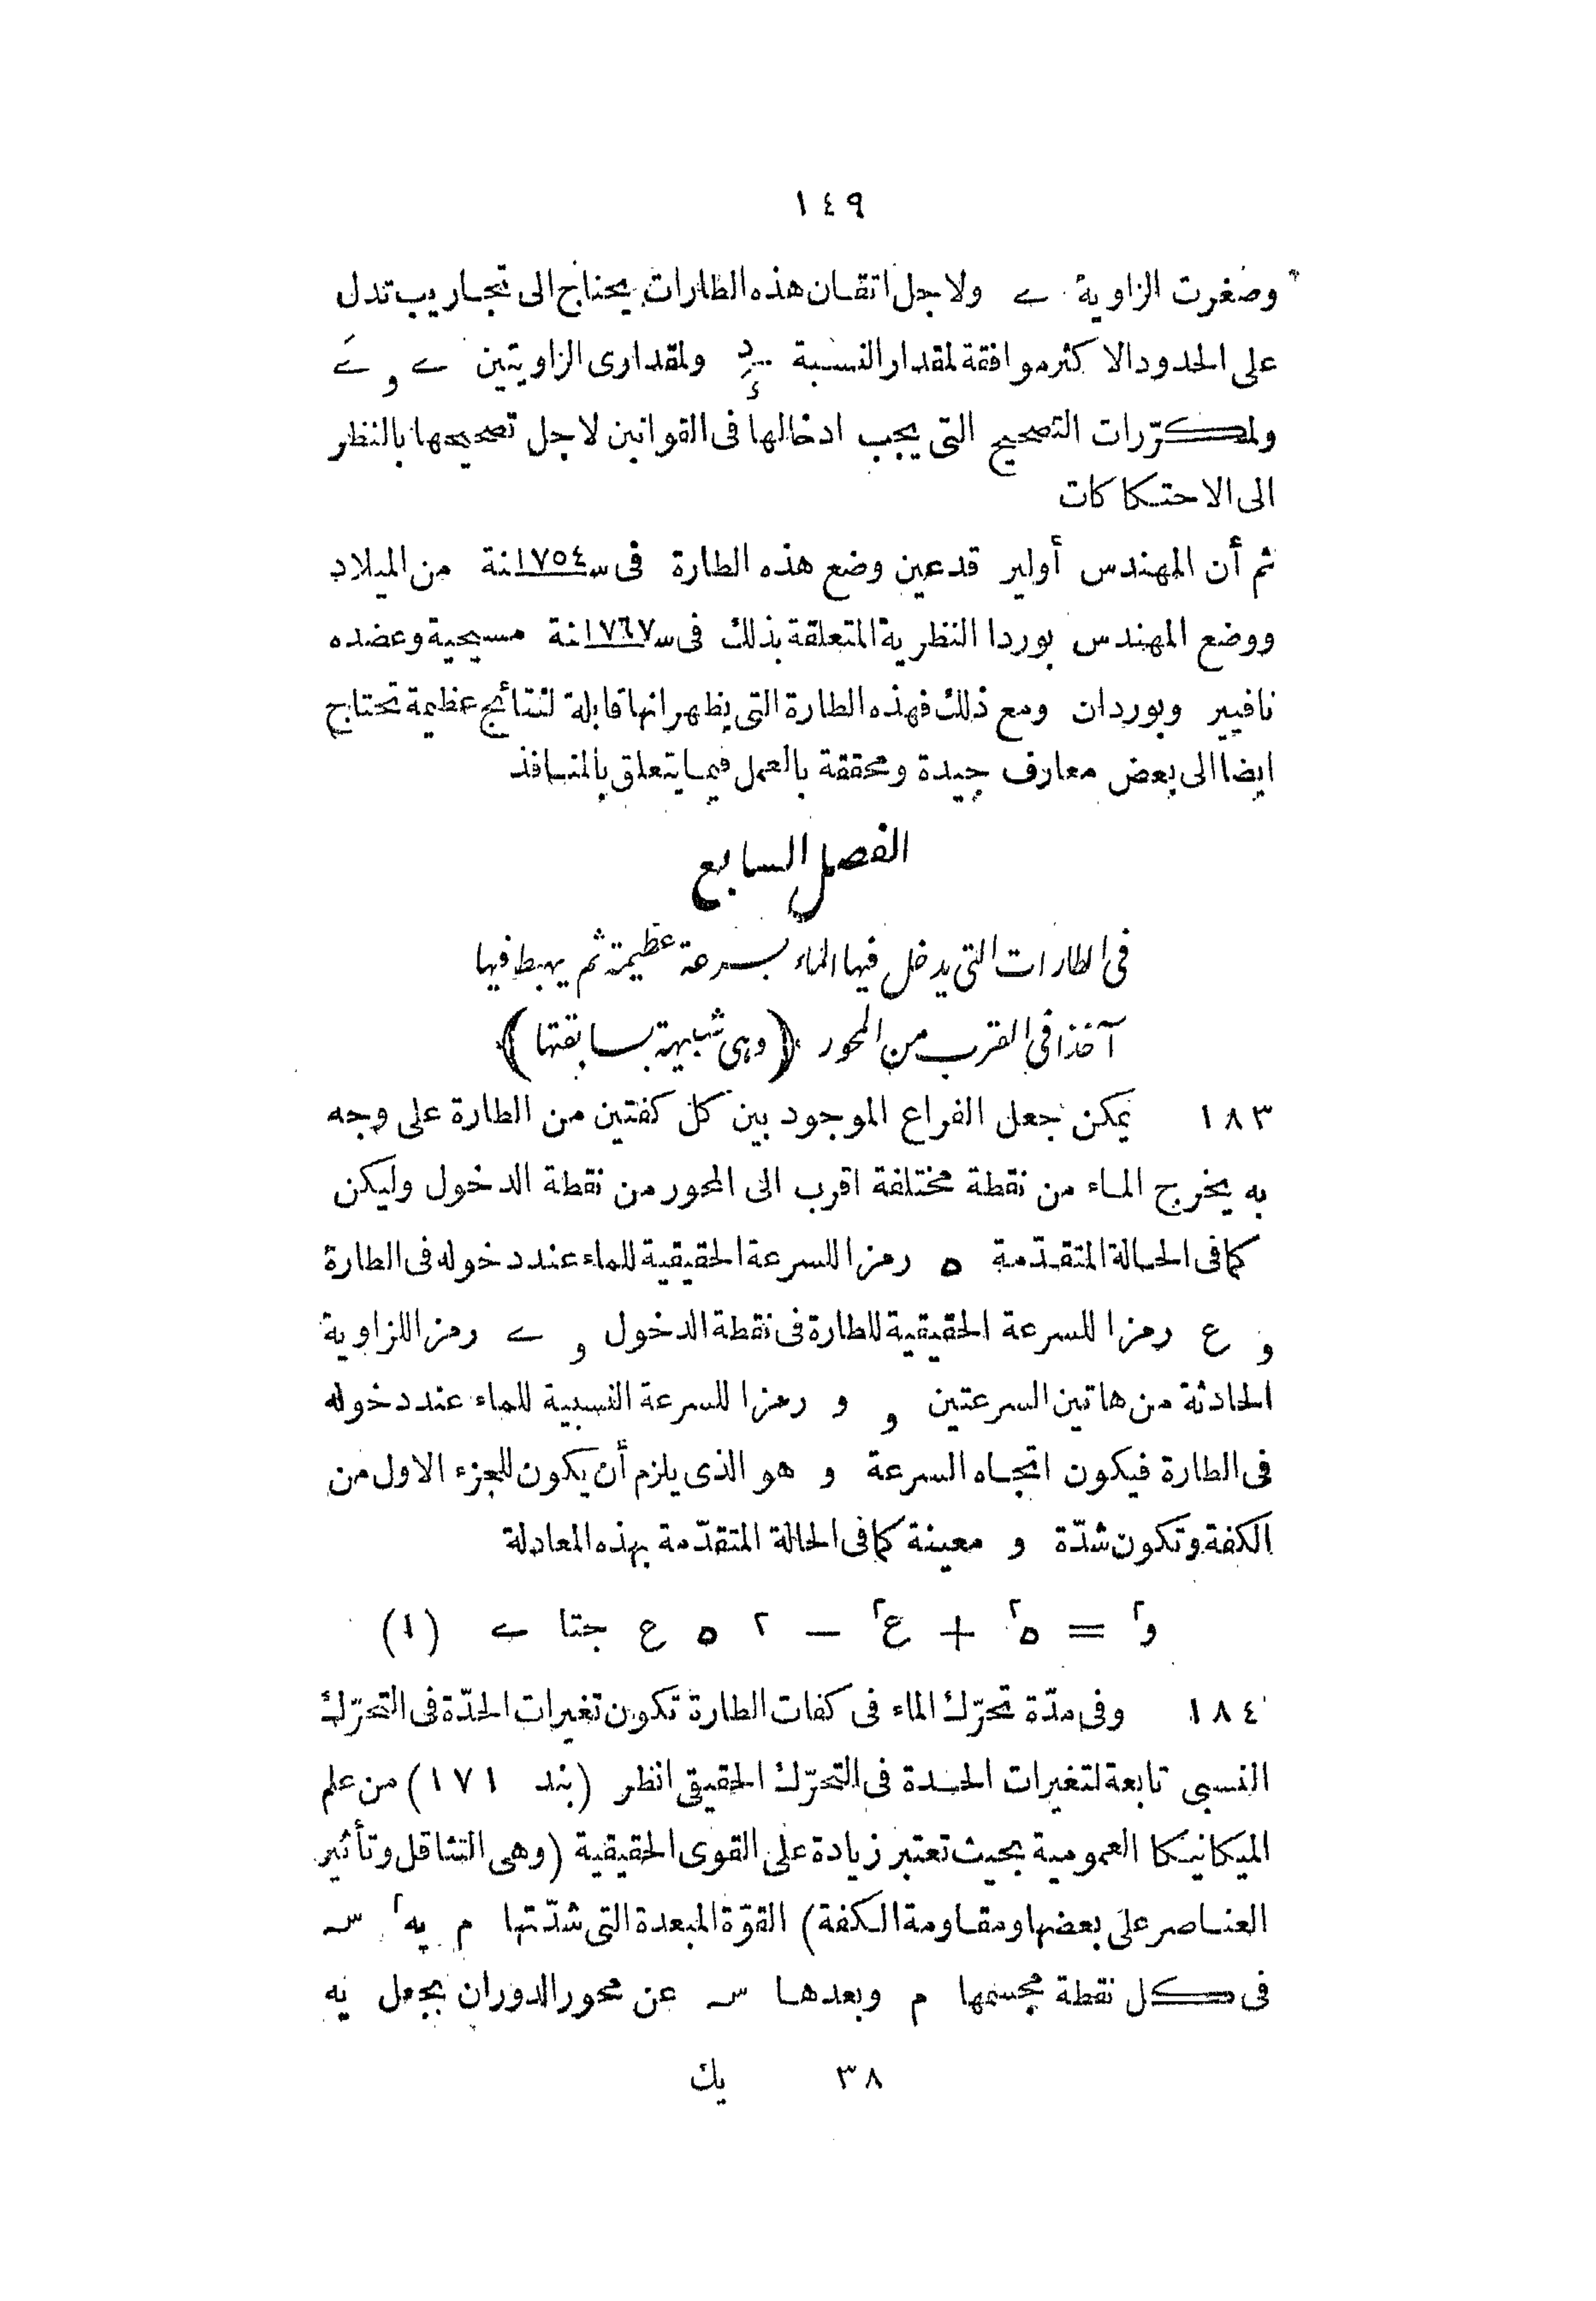 ١٤٩
وصغرت الزاوية ے ولاجل اتقان هذه الطارات يحتاج الى تجاريب تدل
على الحدود الاكثر موافقة لمقدار النسبة ولمقدارى الزاويتين ے و ےَ
ولمكرّرات التصحيح التى يجب ادخالها فى القوانين لاجل تصحيحها بالنظر
الى الاحتكاكات
ثم أن المهندس أولير قد عين وضع هذه الطارة فى سنة ١٧٥٤ من الميلاد
ووضع المهندس بوردا النظرية المتعلقة بذلك فى سنة ١٧٦٧ مسيحية وعضده
نافيير وبوردان ومع ذلك فهذه الطارة التى يظهر انها قابلة لنتائج عظيمة تحتاج
ايضا الى بعض معارف جيدة ومحققة بالعمل فيما يتعلق بالمنافذ
الفصل السابع
فى الطارات التى يدخل فيها الماء بسرعة عظيمة ثم يهبط فيها
آخذا فى القرب من المحور (وهى شبيهة بسابقتها)
١٨٣ يمكن جعل الفراغ الموجود بين كل كفتين من الطارة على وجه
به يخرج الماء من نقطة مختلفة اقرب الى المحور من نقطة الدخول وليكن
كما فى الحالة المتقدّمة ه رمزا للسرعة الحقيقية للماء عند دخوله فى الطارة
و ع رمزا للسرعة الحقيقية للطارة فى نقطة الدخول و ے رمزا للزاوية
الحادثة من هاتين السرعتين و و رمزا للسرعة النسبية للماء عند دخوله
فى الطارة فيكون اتجاه السرعة و هو الذى يلزم أن يكون للجزء الاول من
الكفة وتكون شدّة و معينة كما فى الحالة المتقدّمة بهذه المعادلة
و٢ = ه٢ + ع٢ − ٢ ه ع جتا ے (١)
١٨٤ وفى مدّة تحرّك الماء فى كفات الطارة تكون تغيرات الحدّة فى التحرّك
النسبى تابعة لتغيرات الحدة فى التحرّك الحقيقى انظر (بند ١٧١) من علم
الميكانيكا العمومية بحيث تعتبر زيادة على القوى الحقيقية (وهى التثاقل وتأثير
العناصر على بعضها ومقاومة الكفة) القوّة المبعدة التى شدّتها م يه٢ سـ
فى كل نقطة مجسمها م وبعدها سـ عن محور الدوران بجعل يه
٣٨ يك